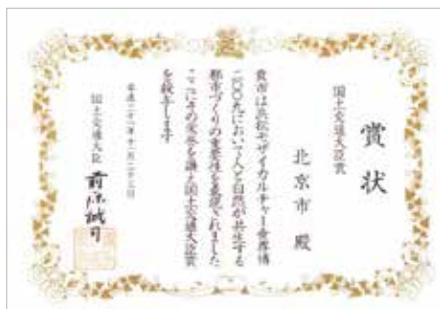 賞状
国土交通大臣賞
北京市 殿
貴市は浜松モザイカルチャー世界博
二〇〇九において人と自然が共生する
都市づくりの重要性を表現されました
ここにその栄誉を讃え国土交通大臣賞
を授与します
平成二十一年十一月二十三日
国土交通大臣 前原誠司